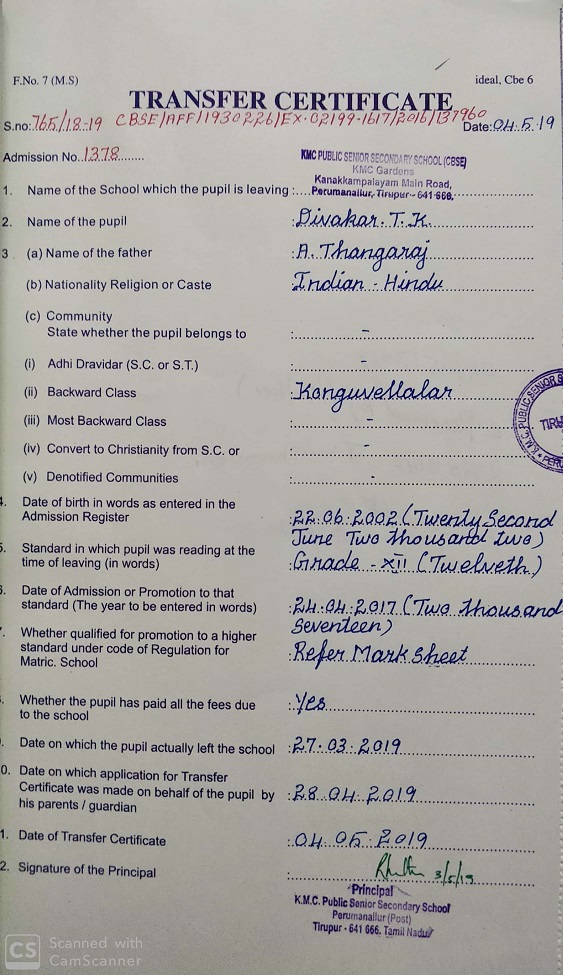 F.No. 7 (M.S) ideal, Cbe 6
TRANSFER CERTIFICATE
S.no: 765/18-19 CBSE/AFF/1930226/EX-02199-1617/2016/137960 Date: 04.5.19
Admission No. 1378
KMC PUBLIC SENIOR SECONDARY SCHOOL (CBSE)
KMC Gardens
Kanakkampalayam Main Road,
1. Name of the School which the pupil is leaving : Perumanallur, Tirupur - 641 666.
2. Name of the pupil : Divakar. T. K.
3 (a) Name of the father : A. Thangaraj
(b) Nationality Religion or Caste : Indian - Hindu
(c) Community
State whether the pupil belongs to : -
(i) Adhi Dravidar (S.C. or S.T.) : -
(ii) Backward Class : Konguvellalar
(iii) Most Backward Class : -
(iv) Convert to Christianity from S.C. or : -
(v) Denotified Communities : -
4. Date of birth in words as entered in the
Admission Register : 22.06.2002 (Twenty Second
June Two thousand two)
5. Standard in which pupil was reading at the
time of leaving (in words) : Grade - XII (Twelveth)
Date of Admission or Promotion to that
standard (The year to be entered in words) : 24.04.2017 (Two thousand
Seventeen)
Whether qualified for promotion to a higher
standard under code of Regulation for : Refer Mark Sheet
Matric. School
Whether the pupil has paid all the fees due : Yes
to the school
Date on which the pupil actually left the school : 27.03.2019
0. Date on which application for Transfer
Certificate was made on behalf of the pupil by : 28.04.2019
his parents / guardian
1. Date of Transfer Certificate : 04.05.2019
2. Signature of the Principal : 3/5/19
Principal
K.M.C. Public Senior Secondary School
Perumanallur (Post)
Tirupur - 641 666. Tamil Nadu
K.M.C. PUBLIC SENIOR S
TIRU
PERU
CS Scanned with
CamScanner